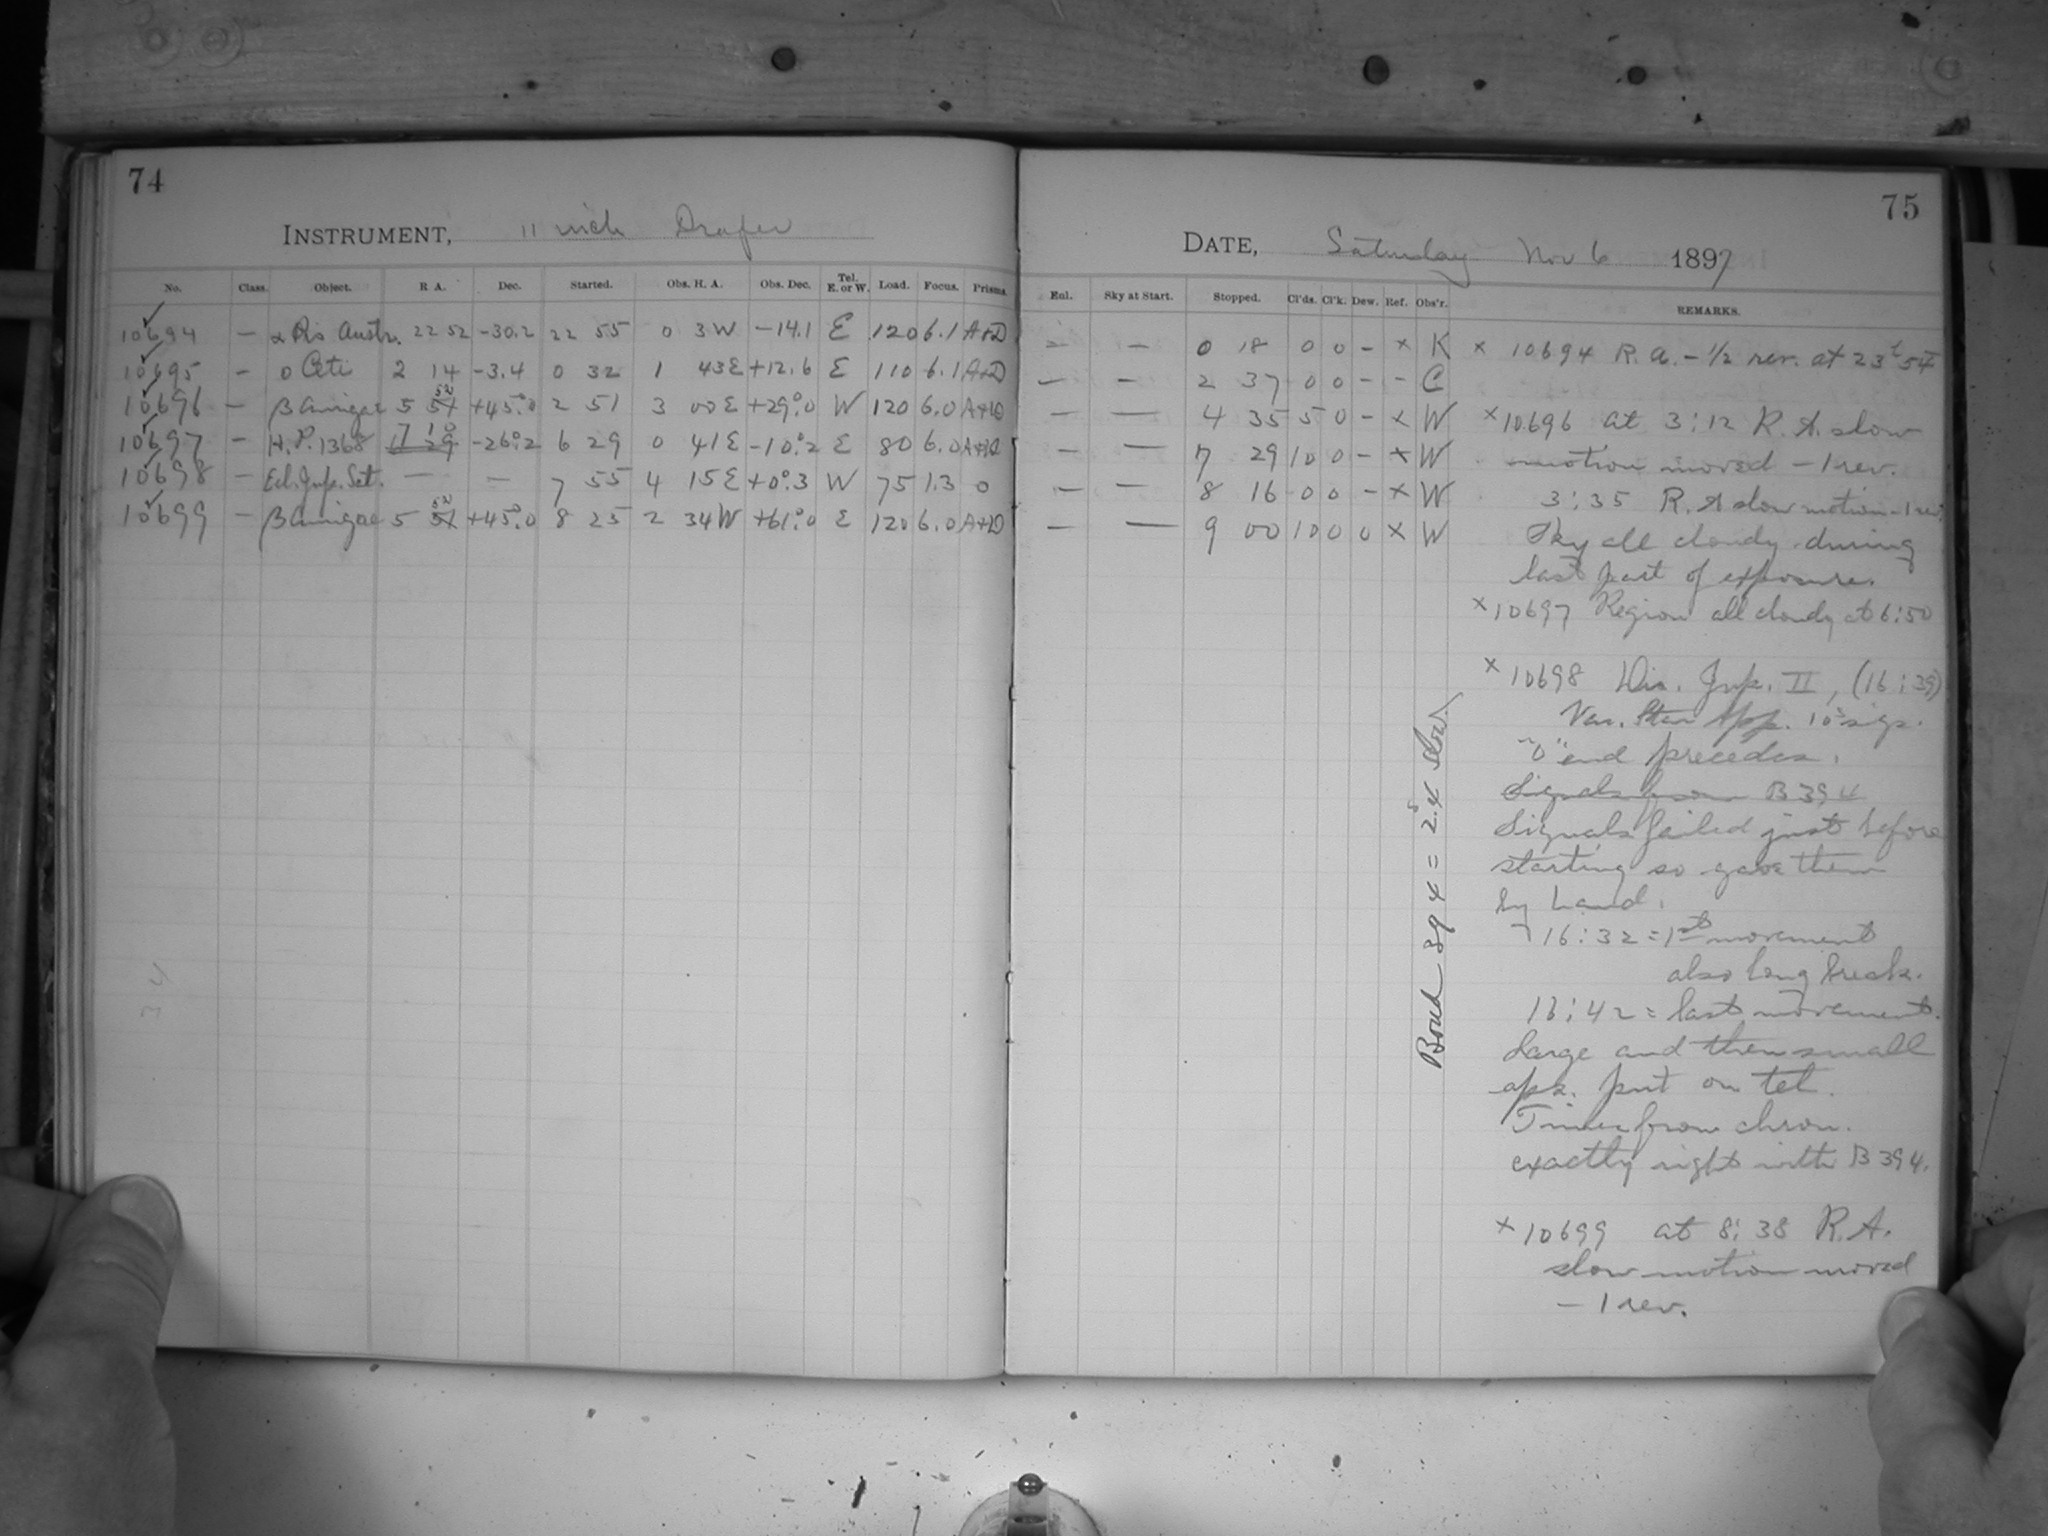 74
INSTRUMENT, 11 inch Draper
No. Class. Object. R A. Dec. Started. Obs. H. A. Obs. Dec. Tel. E. or W. Load. Focus. Prisms.
10694 — α Pis Austr. 22 52 -30.2 22 55 0 3W -14.1 E 120 6.1 A+D
10695 - o Ceti 2 14 -3.4 0 32 1 43E +12.6 E 110 6.1 A+D
10696 — β Aurigae 5 52 +45°.0 2 51 3 00E +29°.0 W 120 6.0 A+D
10697 - H.P. 1368 7 10 -26°.2 6 29 0 41E -10°.2 E 80 6.0 A+D
10698 - Ecl. Jup. Sat. — — 7 55 4 15E +0°.3 W 75 1.3 0
10699 - β Aurigae 5 52 +45°.0 8 25 2 34W +61°.0 E 120 6.0 A+D
34
75
DATE, Saturday Nov 6 1897
Enl. Sky at Start. Stopped. Cl'ds. Cl'k. Dew. Ref. Obs'r. REMARKS.
- - 0 18 0 0 - x K
— - 2 37 0 0 - - C
— — 4 35 5 0 - x W
- — 7 29 10 0 - x W
— — 8 16 0 0 - x W
— — 9 00 10 0 0 x W
x 10694 R.A. - 1/2 rev. at 23h 54
x 10696 at 3:12 R.A. slow
motion moved -1 rev.
3:35 R.A slow motion -1 rev.
Sky all cloudy during
last part of exposure.
x 10697 Region all cloudy at 6:50
x 10698 Dis. Jup. II, (16:39)
Var. Star App. 10s sigs.
"0" end precedes.
Signals from B 394
Signals failed just before
starting so gave them
by hand.
16:32 = 1st movement
also long break.
16:42 = last movement.
Large and then small
aps. put on tel.
Times from chron.
exactly right with B 394.
x 10699 at 8:38 R.A.
slow motion moved
- 1 rev.
Bond 394 = 2s.4 slow.